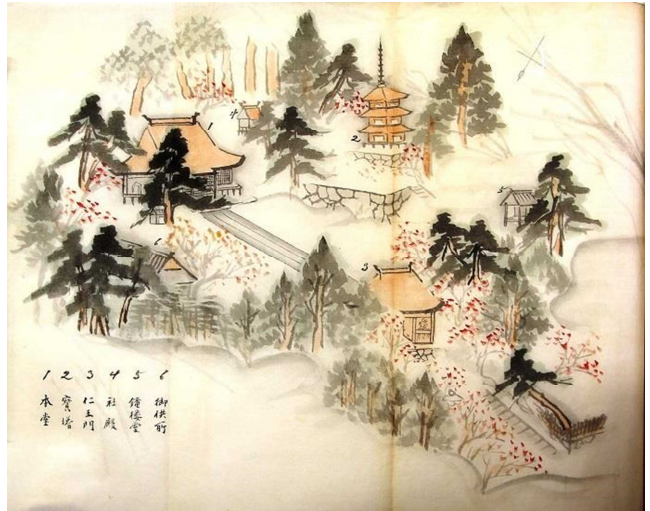 1
4
2
5
6
3
1 本堂
2 寶塔
3 仁王門
4 社殿
5 鐘楼堂
6 御供所